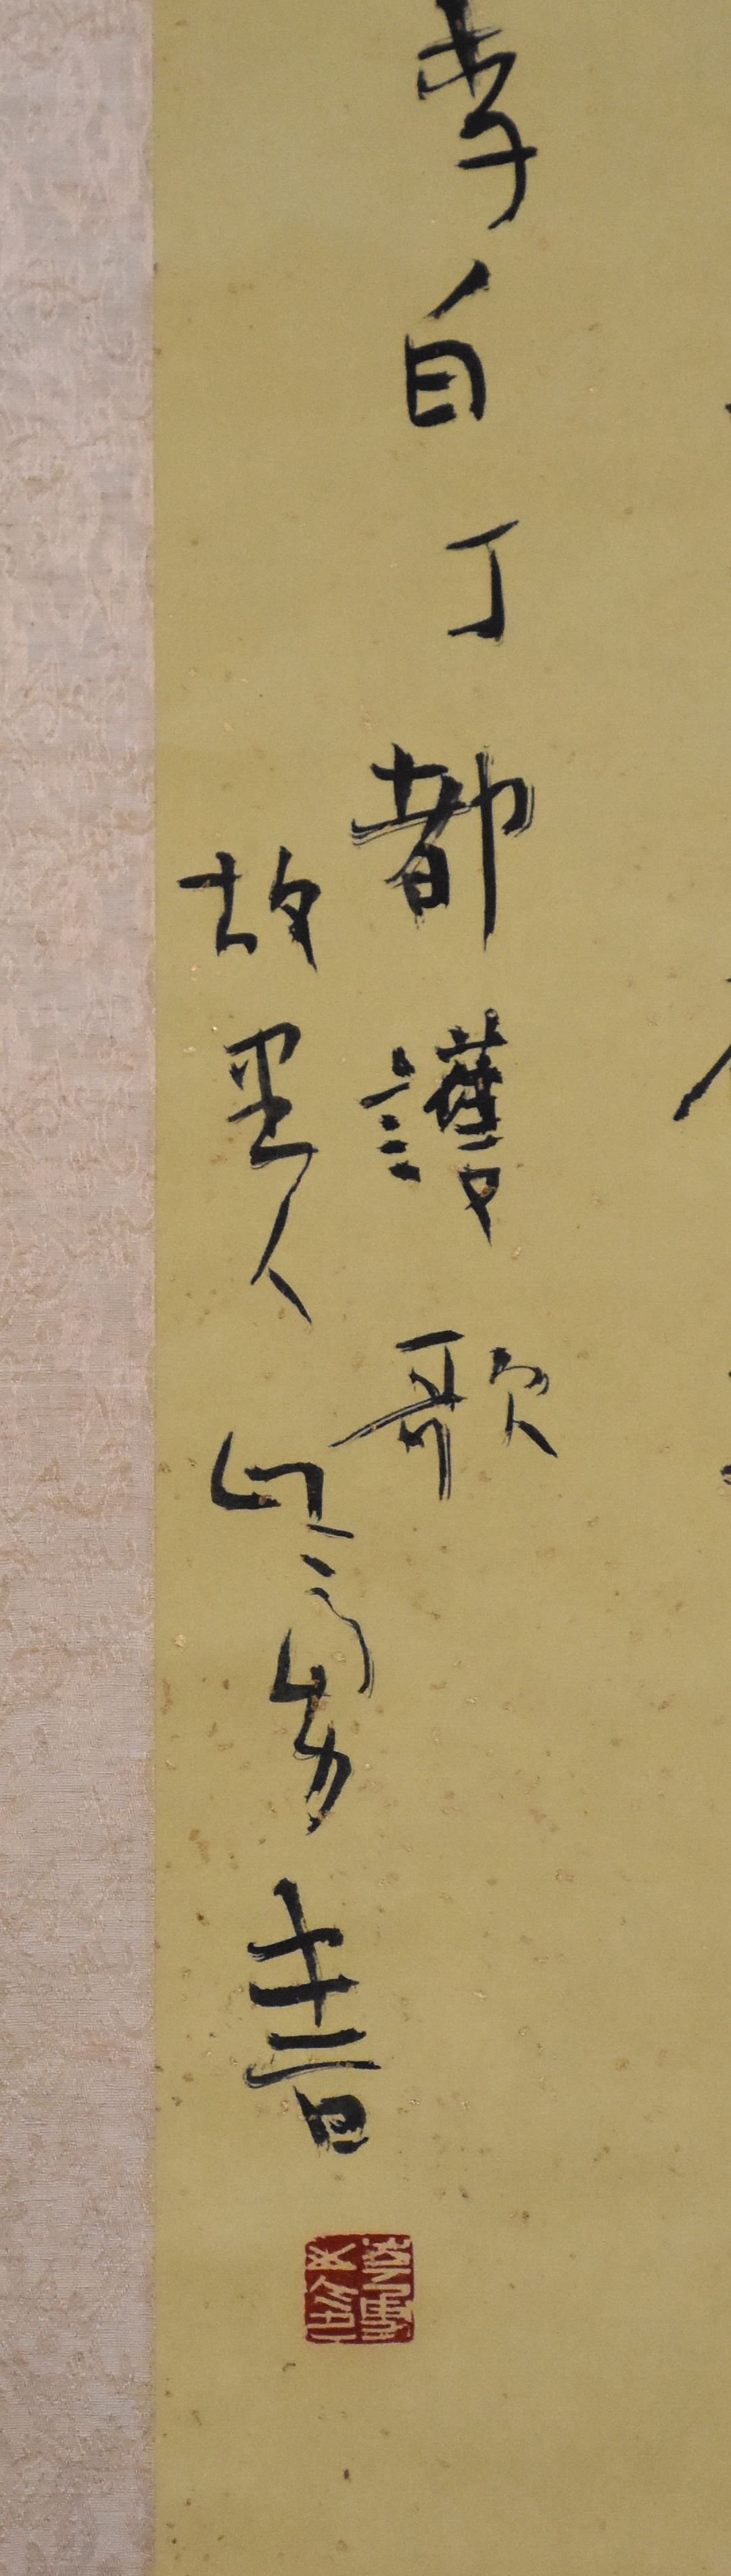 李白丁都護歌
故里人
書